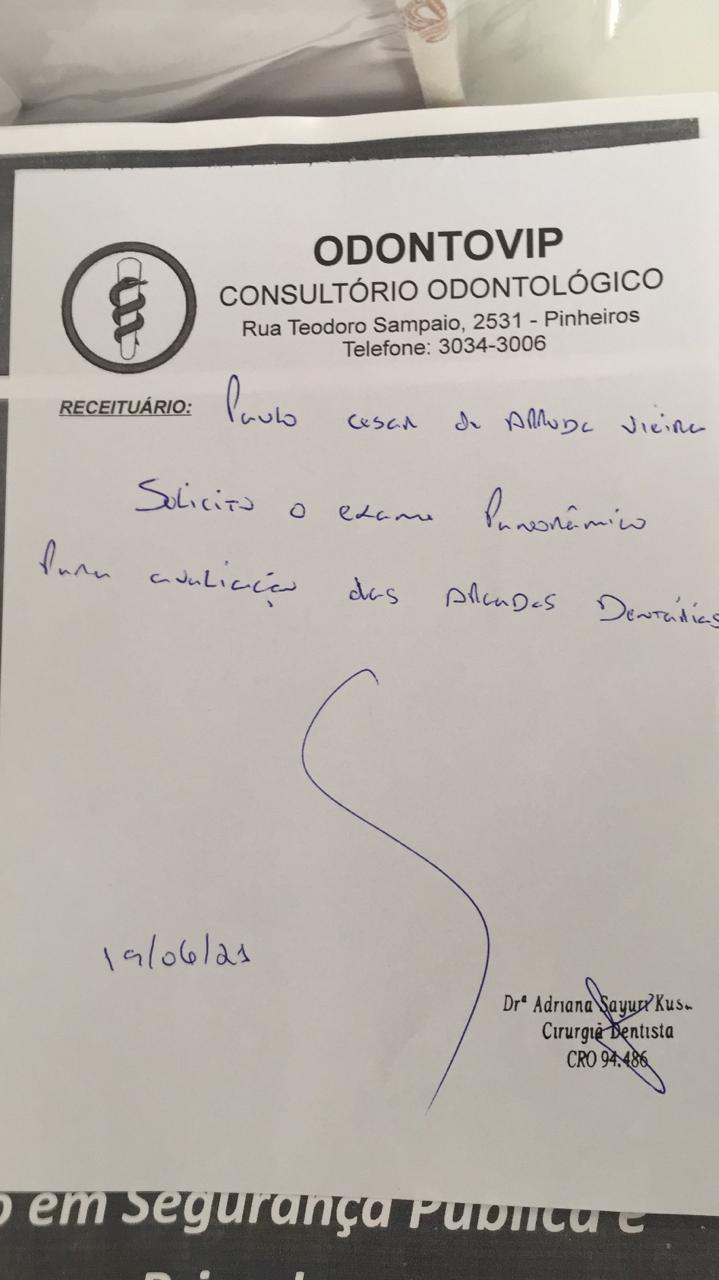 ODONTOVIP
CONSULTÓRIO ODONTOLÓGICO
Rua Teodoro Sampaio, 2531 - Pinheiros
Telefone: 3034-3006
RECEITUÁRIO: Paulo Cesar de Arruda Vieira
Solicito o exame Panorâmico
Para avaliação das Arcadas Dentárias
19/06/21
Drª Adriana Sayuri
Cirurgiã Dentista
CRO 94.486
em Segurança Pública e